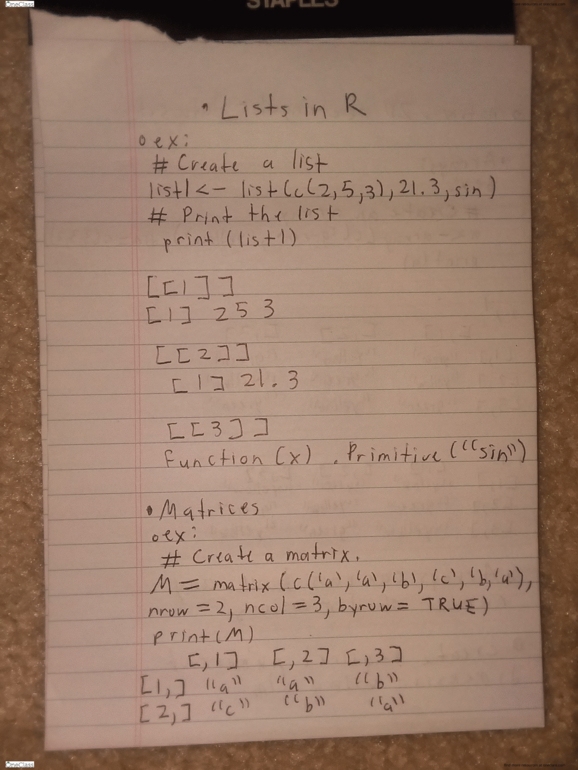 OneClass
STAPLES
• Lists in R
o ex:
# Create a list
list1 <- list(c(2,5,3),21.3,sin)
# Print the list
print (list1)
[[1]]
[1] 2 5 3
[[2]]
[1] 21.3
[[3]]
function (x) .Primitive (“sin”)
• Matrices
o ex:
# Create a matrix.
M = matrix (c(‘a’, ‘a’, ‘b’, ‘c’, ‘b, ‘a’),
nrow = 2, ncol = 3, byrow = TRUE)
print(M)
[,1] [,2] [,3]
[1,] “a” “a” “b”
[2,] “c” “b” “a”
OneClass